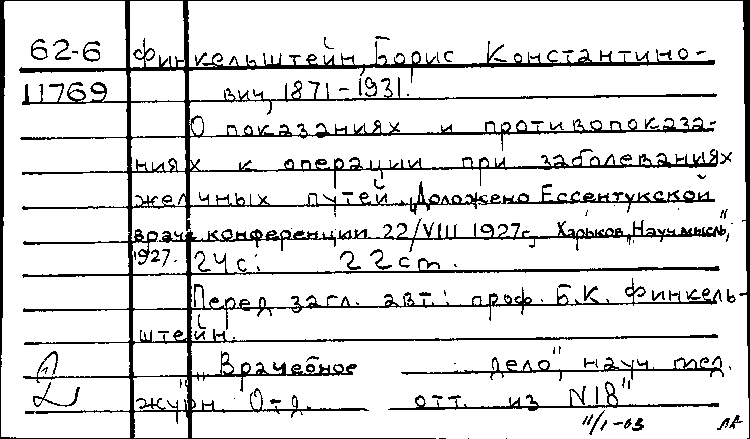 62-6 Финкельштейн, Борис Константино-
11769 вич, 1871-1931.
О показаниях и противопоказа-
ниях к операции при заболеваниях
желчных путей. „Доложено Ессентукской
враче. конференции 22/VIII 1927г., Харьков, „Науч. мысль",
1927. 24с. 22 ст.
Перед загл. авт.: проф. Б.К. Финкель-
штейн.
„„Врачебное дело", науч. мед.
2 журн. Отд. отт. из N18"
11/1-03